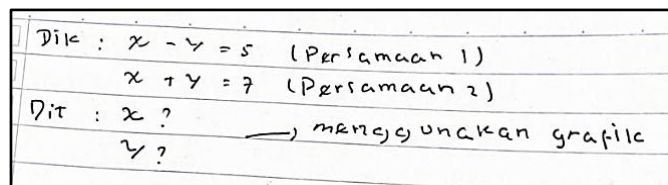 Dik : x - y = 5 (Persamaan 1)
x + y = 7 (Persamaan 2)
Dit : x ?
→ menggunakan grafik
y ?